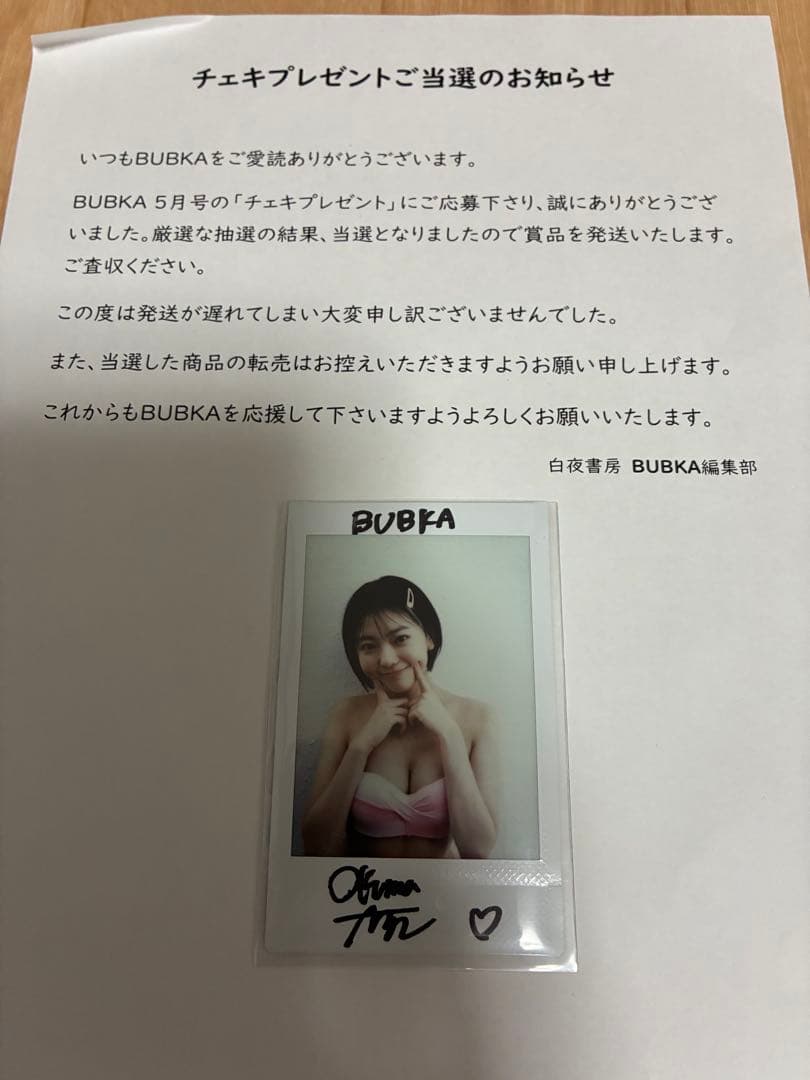 チェキプレゼントご当選のお知らせ
いつもBUBKAをご愛読ありがとうございます。
BUBKA 5月号の「チェキプレゼント」にご応募下さり、誠にありがとうござ
いました。厳選な抽選の結果、当選となりましたので賞品を発送いたします。
ご査収ください。
この度は発送が遅れてしまい大変申し訳ございませんでした。
また、当選した商品の転売はお控えいただきますようお願い申し上げます。
これからもBUBKAを応援して下さいますようよろしくお願いいたします。
白夜書房 BUBKA編集部
BUBKA